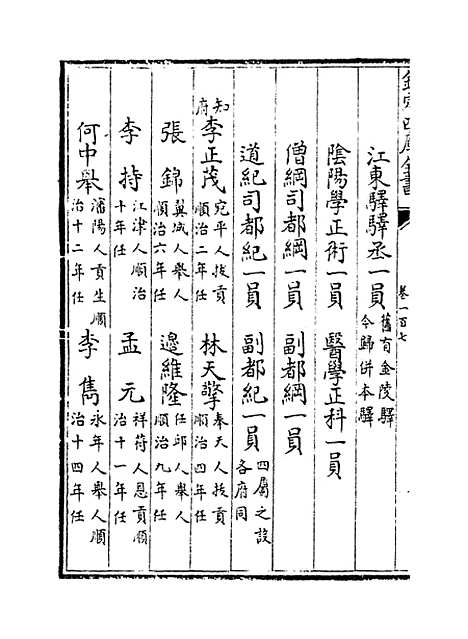 欽定四庫全書
卷一百七
江東驛驛丞一員舊有金陵驛今歸併本驛
陰陽學正術一員 醫學正科一員
僧綱司都綱一員 副都綱一員
道紀司都紀一員 副都紀一員四屬之設各府同
知府李正茂宛平人拔貢順治二年任 林天擎奉天人拔貢順治四年任
張錦翼城人舉人順治六年任 邊維隆任邱人舉人順治九年任
李持江津人順治十年任 孟元祥符人恩貢順治十一年任
何中舉瀋陽人貢生順治十二年任 李雋永年人舉人順治十四年任